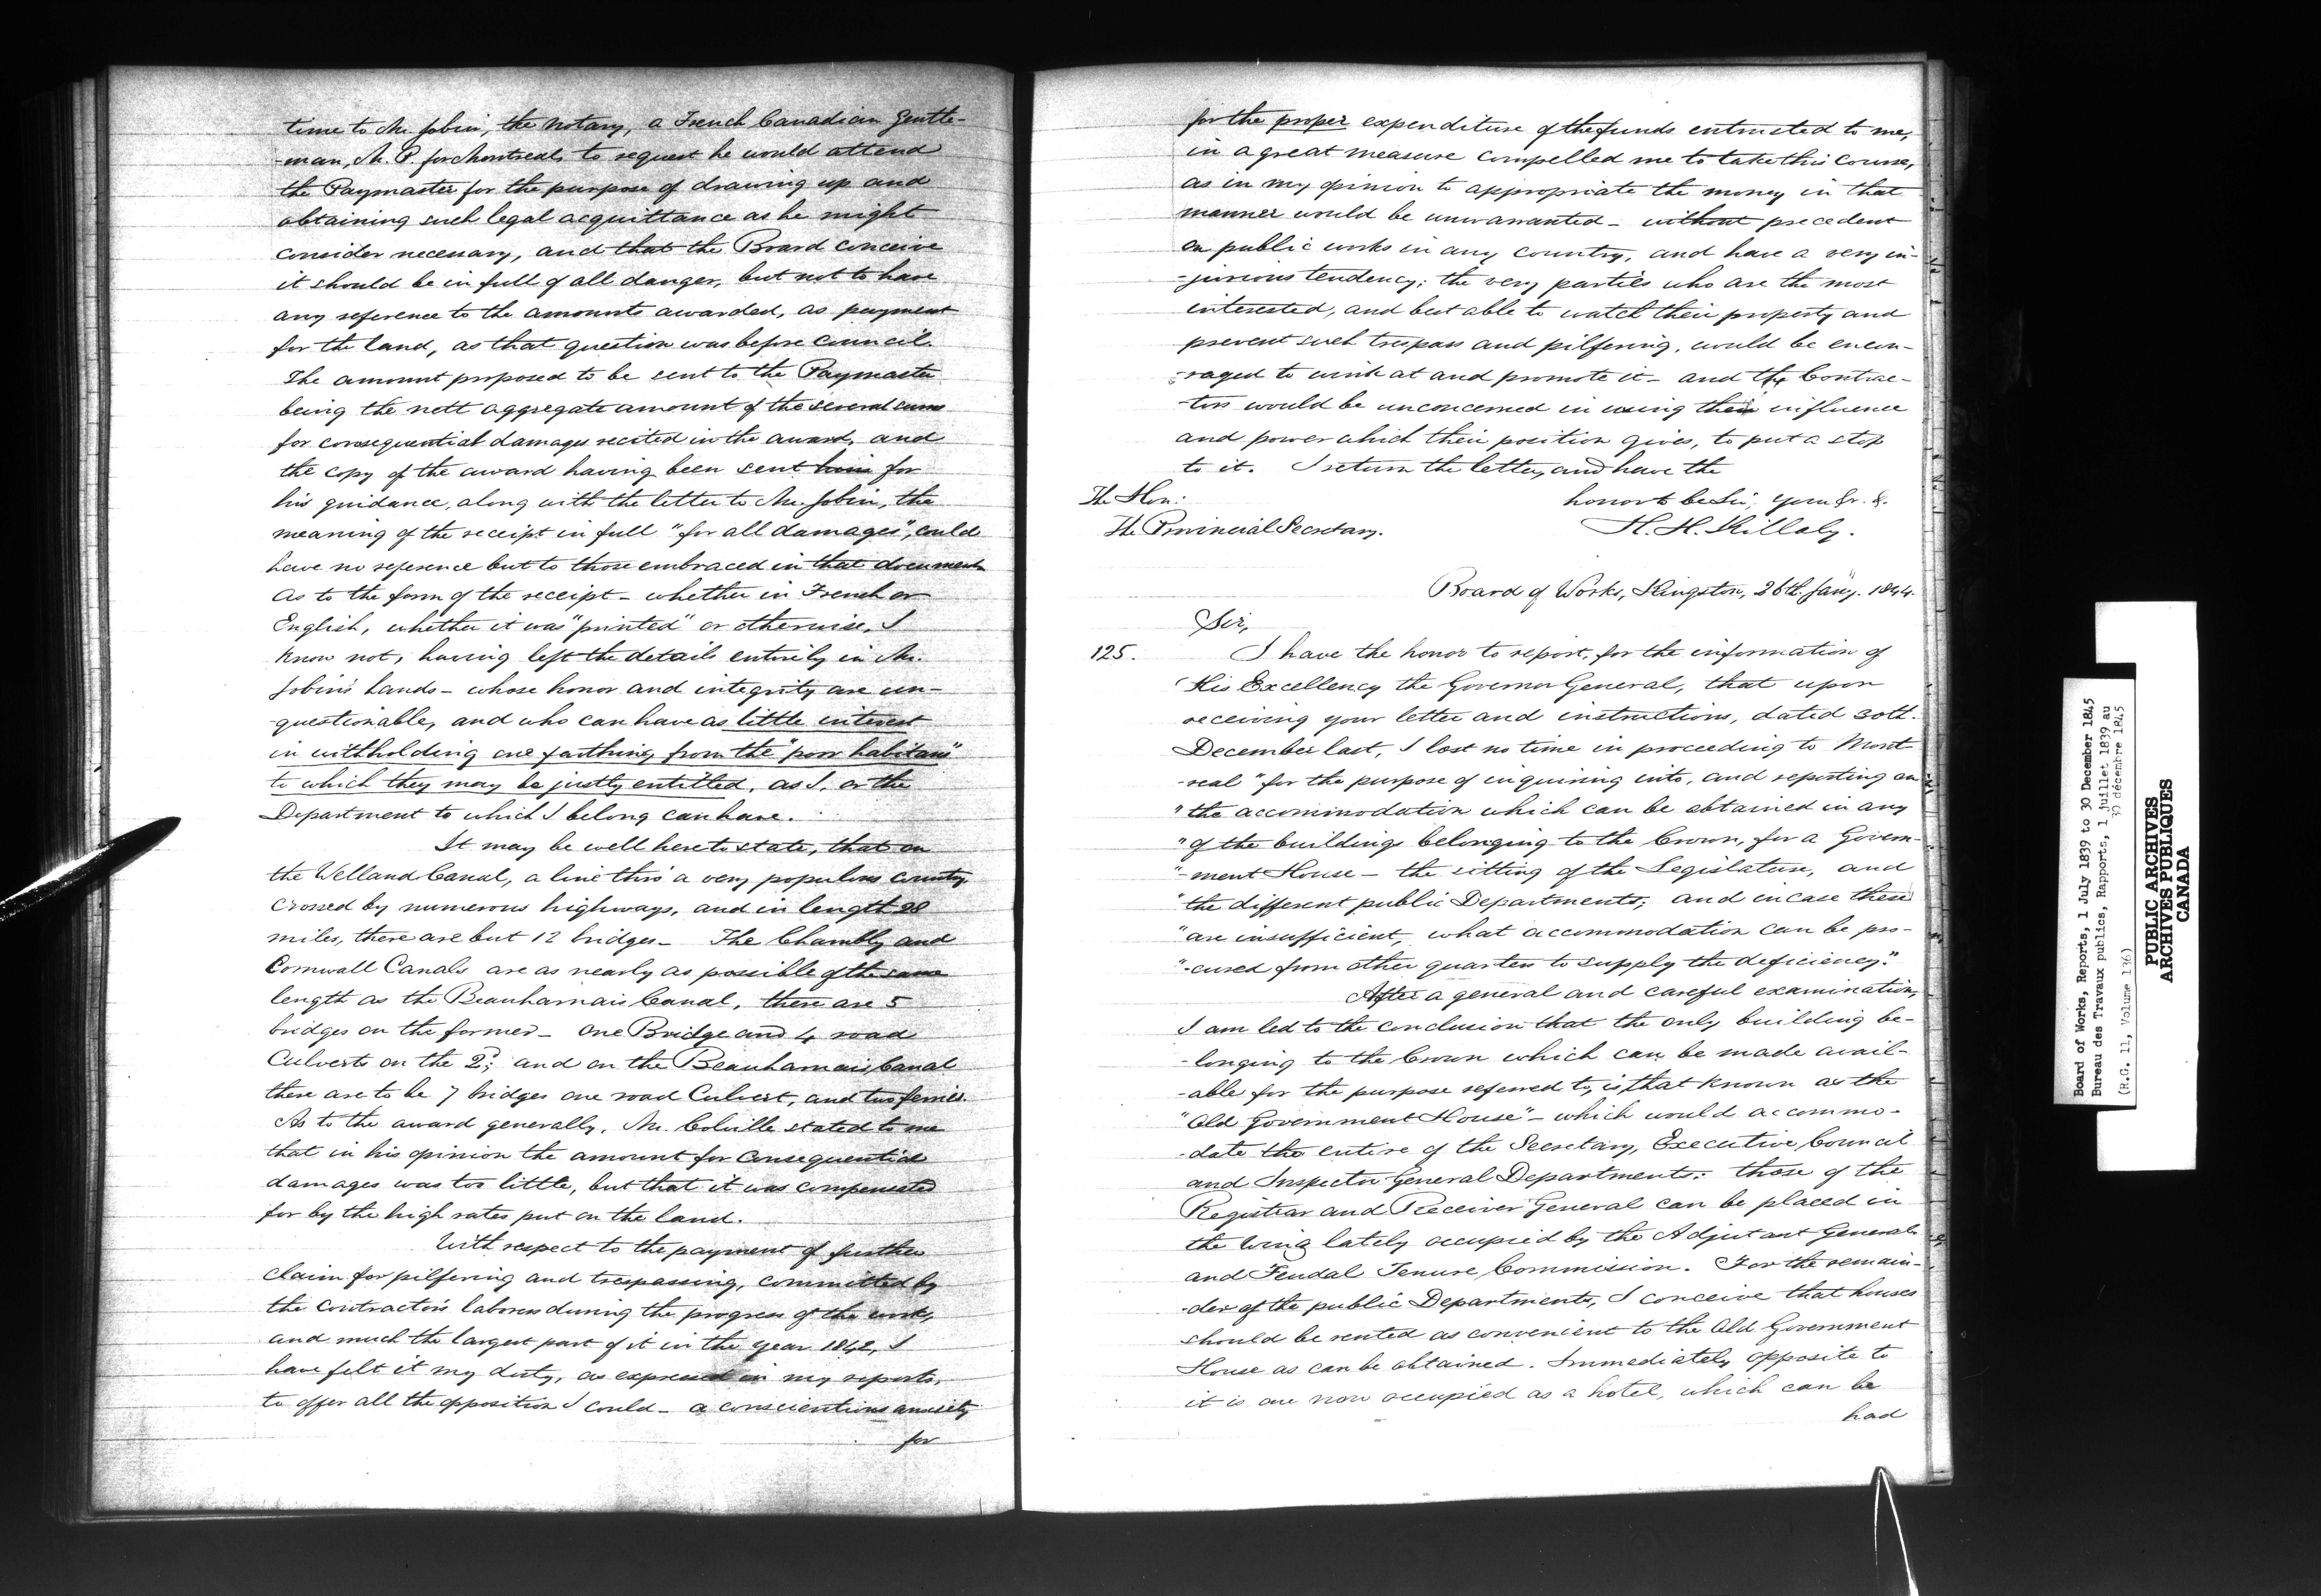 time to Mr. Jobin, the notary, a French Canadian Gentle-
-man, M. P. for Montreal, to request he would attend
the Paymaster for the purpose of drawing up and
obtaining such legal acquittance as he might
consider necessary, and that the Board conceive
it should be in full of all danger, but not to have
any reference to the amounts awarded, as payment
for the land, as that question was before Council.
The amount proposed to be sent to the Paymaster
being the nett aggregate amount of the several sums
for consequential damages recited in the award, and
the copy of the award having been sent him for
his guidance, along with the letter to Mr. Jobin, the
meaning of the receipt in full "for all damages", could
have no reference but to those embraced in that document
As to the form of the receipt - whether in French or
English, whether it was "printed" or otherwise, I
know not, having left the details entirely in Mr.
Jobin's hands - whose honor and integrity are un-
-questionable, and who can have as little interest
in withholding one farthing from the "poor habitans"
to which they may be justly entitled, as I, or the
Department to which I belong can have.
It may be well here to state, that on
the Welland Canal, a line thro' a very populous country
crossed by numerous highways, and in length 28
miles, there are but 12 bridges - The Chambly and
Cornwall Canals are as nearly as possible of the same
length as the Beauharnais Canal, there are 5
bridges on the former - One Bridge and 4 road
Culverts on the 2d; and on the Beauharnais Canal
there are to be 7 bridges one road Culvert, and two ferries.
As to the award generally, Mr. Colville stated to me
that in his opinion the amount for consequential
damages was too little, but that it was compensated
for by the high rates put on the land.
With respect to the payment of further
claim for pilfering and trespassing, committed by
the Contractor's laborers during the progress of the work,
and much the largest part of it in the year 1842, I
have felt it my duty, as expressed in my reports,
to offer all the opposition I could - a conscientious anxiety
for
for the proper expenditure of the funds entrusted to me,
in a great measure compelled me to take this course,
as in my opinion to appropriate the money in that
manner would be unwarranted - without precedent
on public works in any country, and have a very in-
-jurious tendency; the very parties who are the most
interested, and best able to watch their property and
prevent such trespass and pilfering, would be encou-
-raged to wink at and promote it - and the Contrac-
-tors would be unconcerned in using their influence
and power which their position gives, to put a stop
to it. I return the letter, and have the
The Hon: honor to be Sir, your &r. &.
The Provincial Secretary. H. H. Killaly.
Board of Works, Kingston, 26th. Jany. 1844.
Sir,
125. I have the honor to report, for the information of
His Excellency the Governor General, that upon
receiving your letter and instructions, dated 30th.
December last, I lost no time in proceeding to Mont
-real "for the purpose of inquiring into, and reporting on
"the accommodation which can be obtained in any
"of the buildings belonging to the Crown, for a Govern-
"-ment House - the sitting of the Legislature, and
"the different public Departments; and in case these
"are insufficient, what accommodation can be pro-
"-cured from other quarters to supply the deficiency."
After a general and careful examination,
I am led to the conclusion that the only building be-
-longing to the Crown which can be made avail-
-able for the purpose referred to, is that known as the
"Old Government House" - which would accommo-
-date the entire of the Secretary, Executive Council
and Inspector General Departments: those of the
Registrar and Receiver General can be placed in
the wing lately occupied by the Adjutant General
and Feudal Tenure Commission. For the remain-
-der of the public Departments, I conceive that houses
should be rented as convenient to the Old Government
House as can be obtained. Immediately opposite to
it is one now occupied as a hotel, which can be
had
Board of Works, Reports, 1 July 1839 to 30 December 1845
Bureau des Travaux publics, Rapports, 1 juillet 1839 au
30 décembre 1845
(R.G. 11, Volume 136)
PUBLIC ARCHIVES
ARCHIVES PUBLIQUES
CANADA